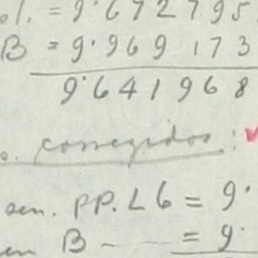 ol. = 9.672795
B = 9.969173
9.641968
o. corregidos:
sen. PP. L6 = 9.
en B - = 9.